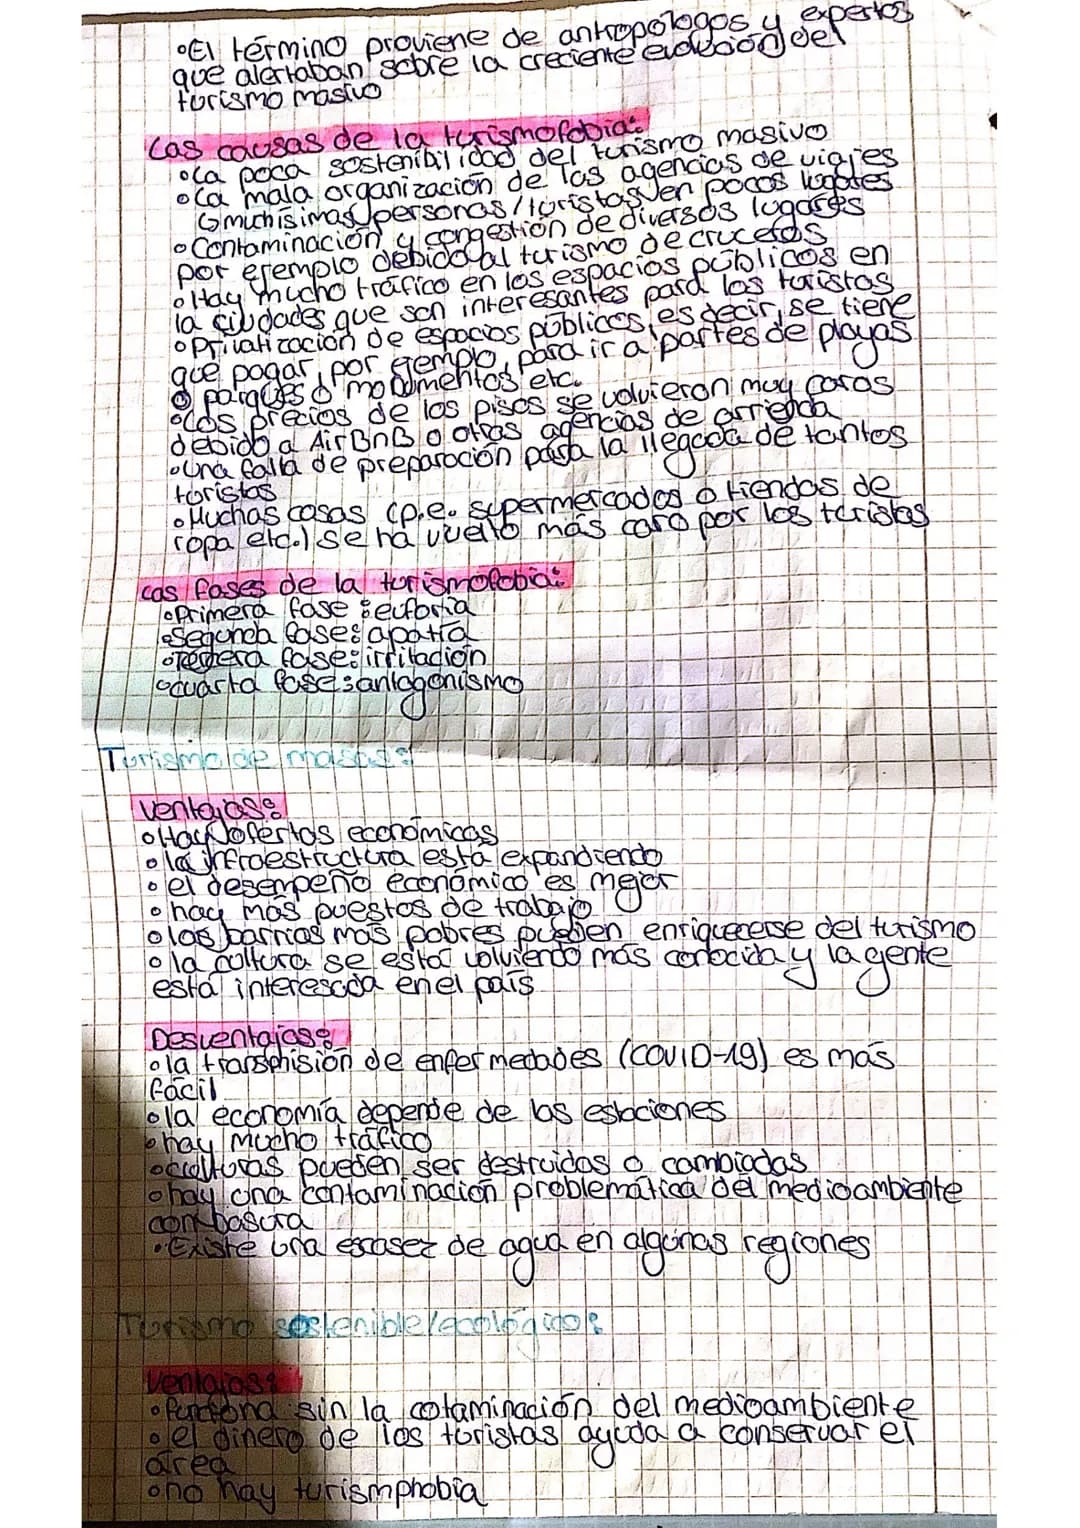 •El término proviene de antropólogos y expertos
que alertaban sobre la creciente evolución del
turismo masivo
Las causas de la turismofobia:
•La poca sostenibilidad del turismo masivo
•La mala organización de las agencias de viajes
↳muchísimas personas/turistas en pocos lugares
•Contaminación y congestión de diversos lugares
por ejemplo debido al turismo de cruceros
•Hay mucho tráfico en los espacios públicos en
la ciudades que son interesantes para los turistas
•Privatización de espacios públicos, es decir, se tiene
que pagar, por ejemplo, para ir a partes de playas
o parques o monumentos etc.
•Los precios de los pisos se volvieron muy caros
debido a AirBnB o otras agencias de arrienda
•Una falta de preparación para la llegada de tantos
toristas
•Muchas cosas (p.e. supermercados o tiendas de
ropa etc.) se ha vuelto más caro por los turistas
Las fases de la turismofobia:
•Primera fase: euforia
•Segunda fase: apatía
•Tercera fase: irritación
•cuarta fase: antagonismo
Turismo de masas:
Ventajas:
•Hay ofertas económicas
•la infraestructura está expandiendo
•el desempeño económico es mejor
•hay más puestos de trabajo
•los barrios más pobres pueden enriquecerse del turismo
•la cultura se está volviendo más conocida y la gente
está interesada en el país
Desventajas:
•la transmisión de enfermedades (COVID-19) es más
fácil
•la economía depende de las estaciones
•hay mucho tráfico
•culturas pueden ser destruidas o cambiadas
•hay una contaminación problemática del medioambiente
con basura
•Existe una escasez de agua en algunas regiones
Turismo sostenible/ecológico:
Ventajas:
•funciona sin la cotaminación del medioambiente
•el dinero de los turistas ayuda a conservar el
área
•no hay turismphobia